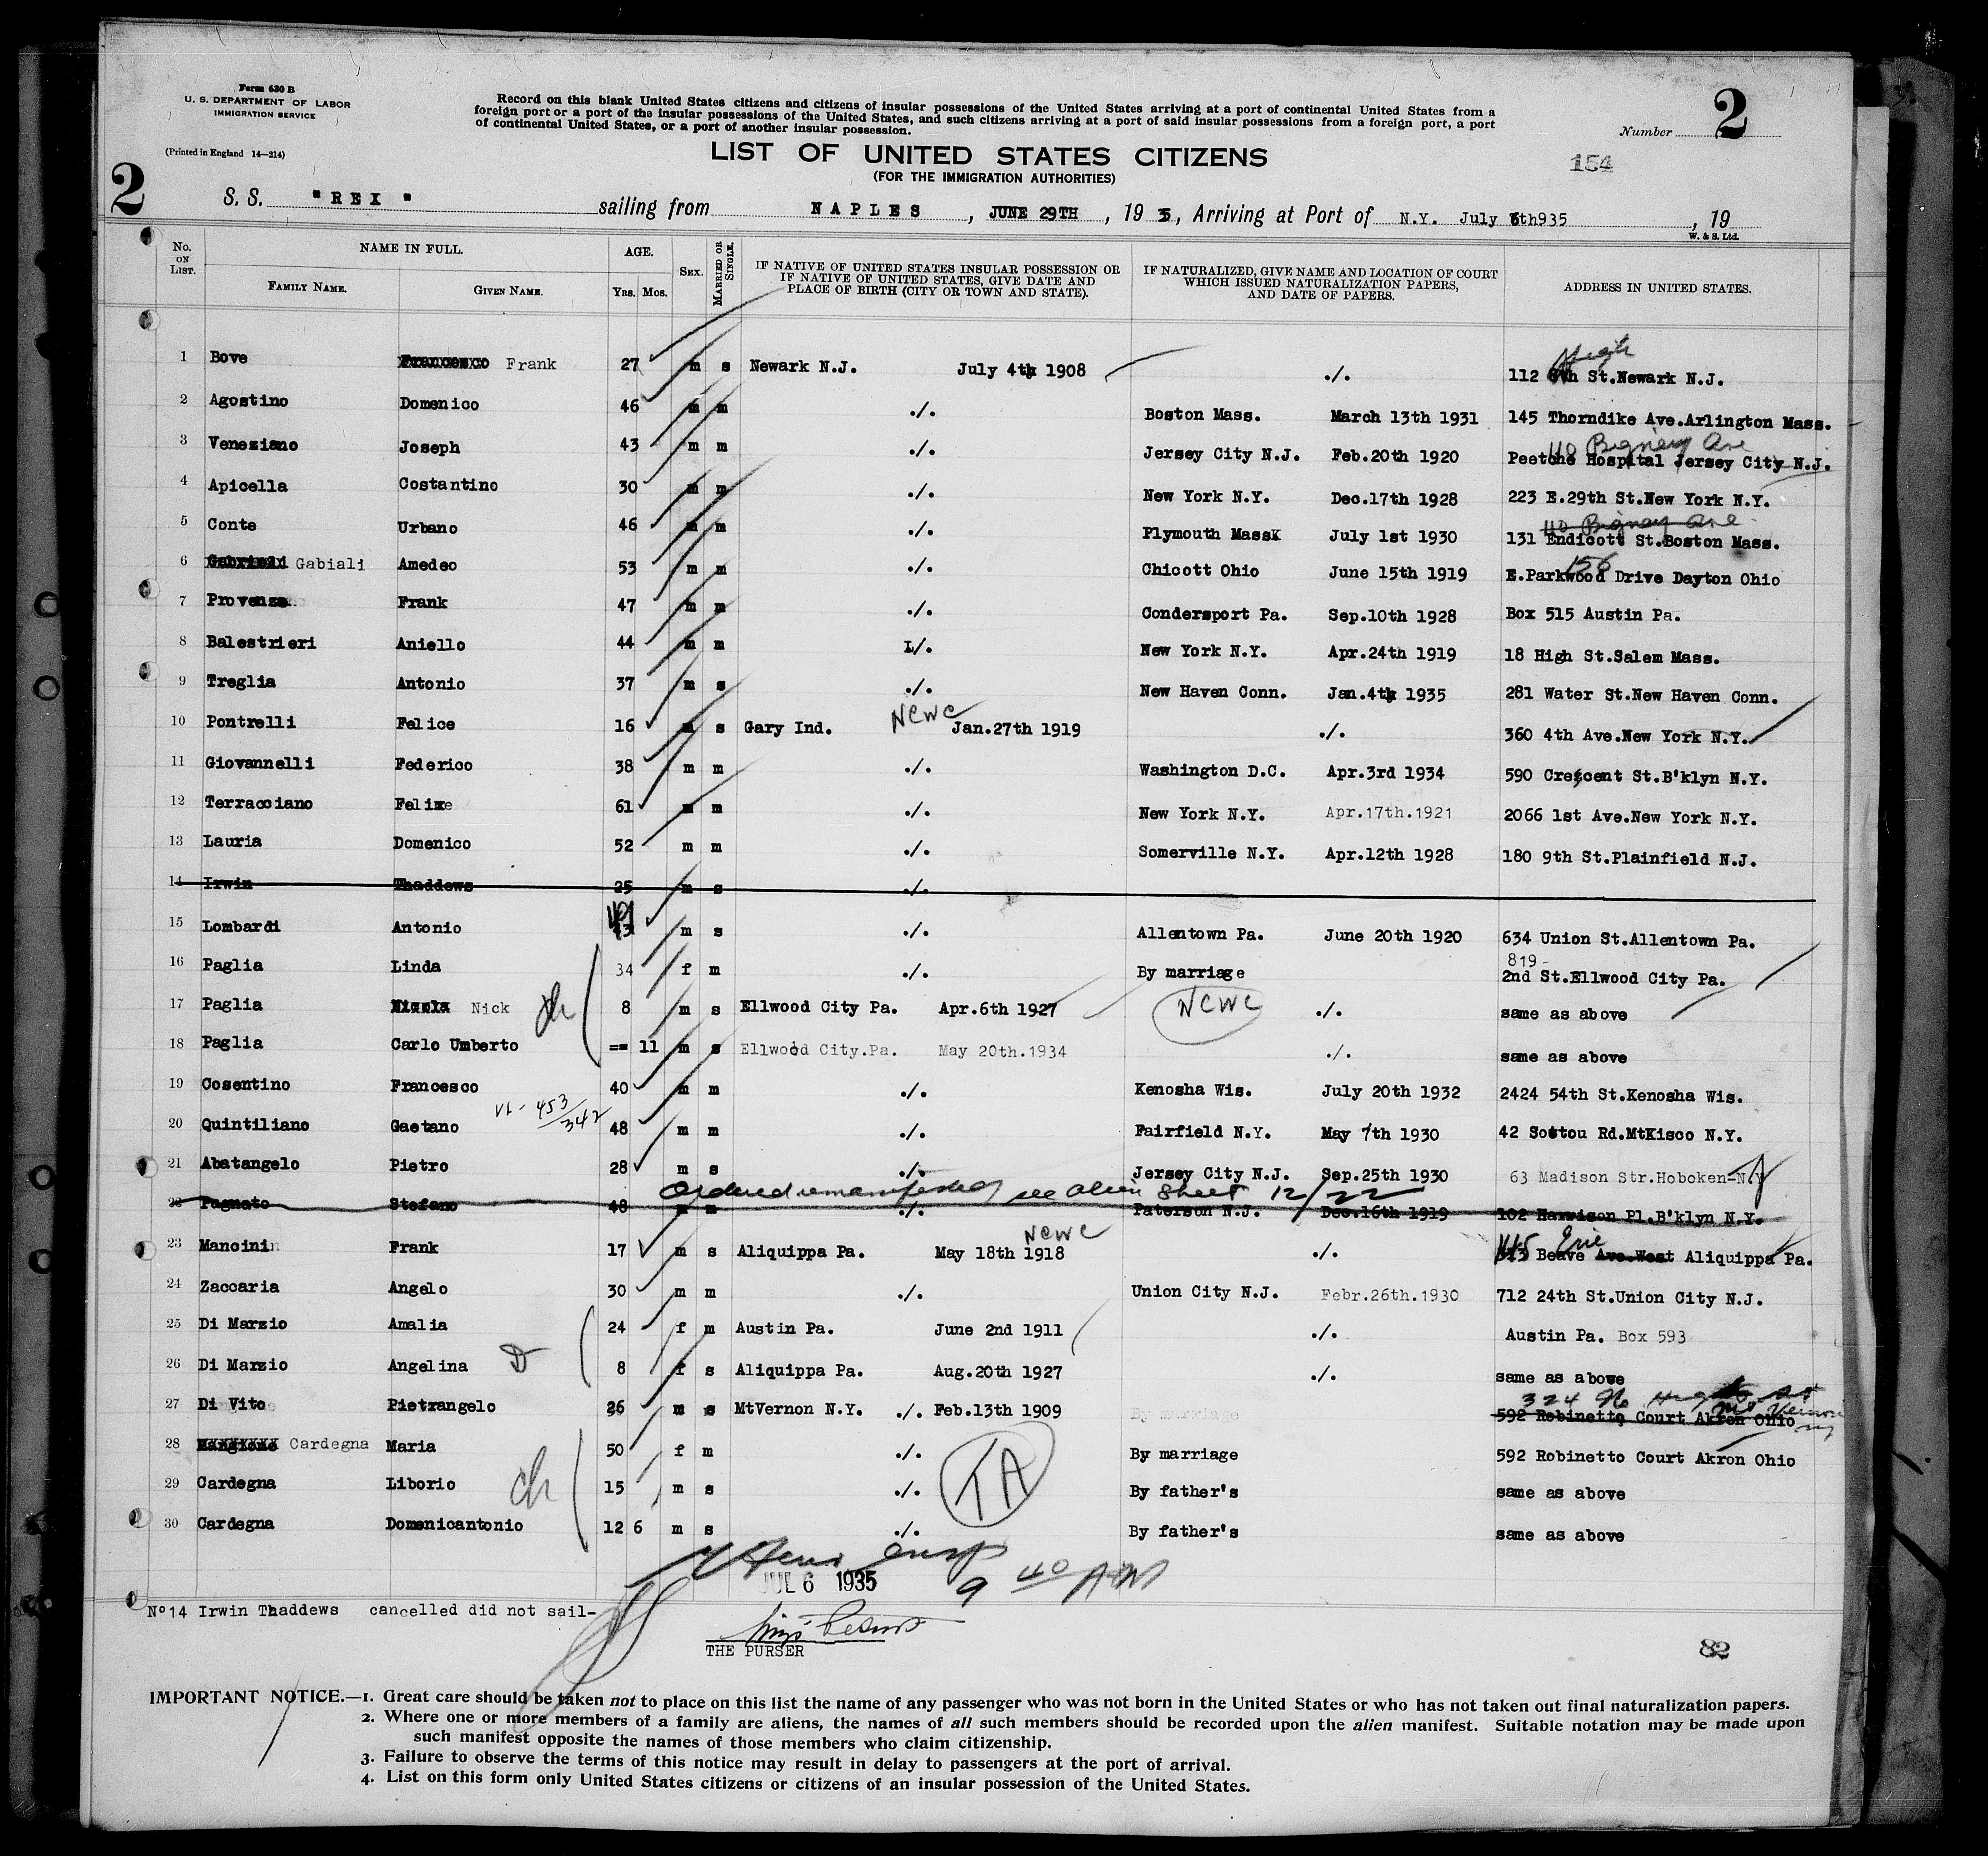 Form 630 B
U. S. DEPARTMENT OF LABOR
IMMIGRATION SERVICE
(Printed in England 14—214)
Record on this blank United States citizens and citizens of insular possessions of the United States arriving at a port of continental United States from a
foreign port or a port of the insular possessions of the United States, and such citizens arriving at a port of said insular possessions from a foreign port, a port
of continental United States, or a port of another insular possession.
Number 2
LIST OF UNITED STATES CITIZENS
(FOR THE IMMIGRATION AUTHORITIES)
154
2
S. S. "REX" sailing from NAPLES, JUNE 29TH, 19 35, Arriving at Port of N.Y. July 6th935, 19
W. & S. Ltd.
No. ON LIST. NAME IN FULL. FAMILY NAME. GIVEN NAME. AGE. YRS. MOS. SEX. MARRIED OR SINGLE. IF NATIVE OF UNITED STATES INSULAR POSSESSION OR IF NATIVE OF UNITED STATES, GIVE DATE AND PLACE OF BIRTH (CITY OR TOWN AND STATE). IF NATURALIZED, GIVE NAME AND LOCATION OF COURT WHICH ISSUED NATURALIZATION PAPERS, AND DATE OF PAPERS. ADDRESS IN UNITED STATES.
1 Bove Francesco Frank 27 m s Newark N.J. July 4th 1908 ./. 112 St.Newark N.J.
2 Agostino Domenico 46 m m ./. Boston Mass. March 13th 1931 145 Thorndike Ave.Arlington Mass.
110 Bigney Ave
3 Veneziano Joseph 43 m m ./. Jersey City N.J. Feb.20th 1920 Peetche Hospital Jersey City N.J.
4 Apicella Costantino 30 m m ./. New York N.Y. Dec.17th 1928 223 E.29th St.New York N.Y.
110 Bigney Ave
5 Conte Urbano 46 m m ./. Plymouth Mass July 1st 1930 131 Endicott St.Boston Mass.
156
6 Gabrieli Gabiali Amedeo 53 m m ./. Chicott Ohio June 15th 1919 E.Parkwood Drive Dayton Ohio
7 Provenza Frank 47 m m ./. Condersport Pa. Sep.10th 1928 Box 515 Austin Pa.
8 Balestrieri Aniello 44 m m ./. New York N.Y. Apr.24th 1919 18 High St.Salem Mass.
9 Treglia Antonio 37 m s ./. New Haven Conn. Jan.4th 1935 281 Water St.New Haven Conn.
NCWC
10 Pontrelli Felice 16 m s Gary Ind. Jan.27th 1919 ./. 360 4th Ave.New York N.Y.
11 Giovannelli Federico 38 m m ./. Washington D.C. Apr.3rd 1934 590 Crescent St.B'klyn N.Y.
12 Terracciano Felixe 61 m m ./. New York N.Y. Apr.17th.1921 2066 1st Ave.New York N.Y.
13 Lauria Domenico 52 m m ./. Somerville N.Y. Apr.12th 1928 180 9th St.Plainfield N.J.
14 Irwin Thaddews 25 m s ./.
49
15 Lombardi Antonio m s ./. Allentown Pa. June 20th 1920 634 Union St.Allentown Pa.
819-
16 Paglia Linda 34 f m ./. By marriage 2nd St.Ellwood City Pa.
17 Paglia Nicola Nick ch 8 m s Ellwood City Pa. Apr.6th 1927 NCWC ./. same as above
18 Paglia Carlo Umberto == 11 m s Ellwood City.Pa. May 20th.1934 ./. same as above
19 Cosentino Francesco 40 m m ./. Kenosha Wis. July 20th 1932 2424 54th St.Kenosha Wis.
VL- 453/342
20 Quintiliano Gaetano 48 m m ./. Fairfield N.Y. May 7th 1930 42 Sottou Rd.MtKisco N.Y.
21 Abatangelo Pietro 28 m s ./. Jersey City N.J. Sep.25th 1930 63 Madison Str.Hoboken-N.Y
Ordered remanifested see alien sheet 12/22
22 Pugnato Stefano 48 m m ./. Paterson N.J. Dec.16th 1919 102 Harrison Pl.B'klyn N.Y.
NCWC
Erie
23 Mancini Frank 17 m s Aliquippa Pa. May 18th 1918 ./. Beave Ave.West Aliquippa Pa.
24 Zaccaria Angelo 30 m m ./. Union City N.J. Febr.26th.1930 712 24th St.Union City N.J.
25 Di Marzio Amalia 24 f m Austin Pa. June 2nd 1911 ./. Austin Pa. Box 593
26 Di Marzio Angelina D 8 f s Aliquippa Pa. Aug.20th 1927 ./. same as above
324 No High St
Mt Vernon NY
27 Di Vito Pietrangelo 26 m s MtVernon N.Y. ./. Feb.13th 1909 By marriage 592 Robinetto Court Akron Ohio
28 Mangione Cardegna Maria 50 f m ./. By marriage 592 Robinetto Court Akron Ohio
29 Cardegna Liborio ch 15 m s ./. TA By father's same as above
30 Cardegna Domenicantonio 12 6 m s ./. By father's same as above
JUL 6 1935 9 40 AM
No14 Irwin Thaddews cancelled did not sail-
THE PURSER
82
IMPORTANT NOTICE.—1. Great care should be taken not to place on this list the name of any passenger who was not born in the United States or who has not taken out final naturalization papers.
2. Where one or more members of a family are aliens, the names of all such members should be recorded upon the alien manifest. Suitable notation may be made upon
such manifest opposite the names of those members who claim citizenship.
3. Failure to observe the terms of this notice may result in delay to passengers at the port of arrival.
4. List on this form only United States citizens or citizens of an insular possession of the United States.